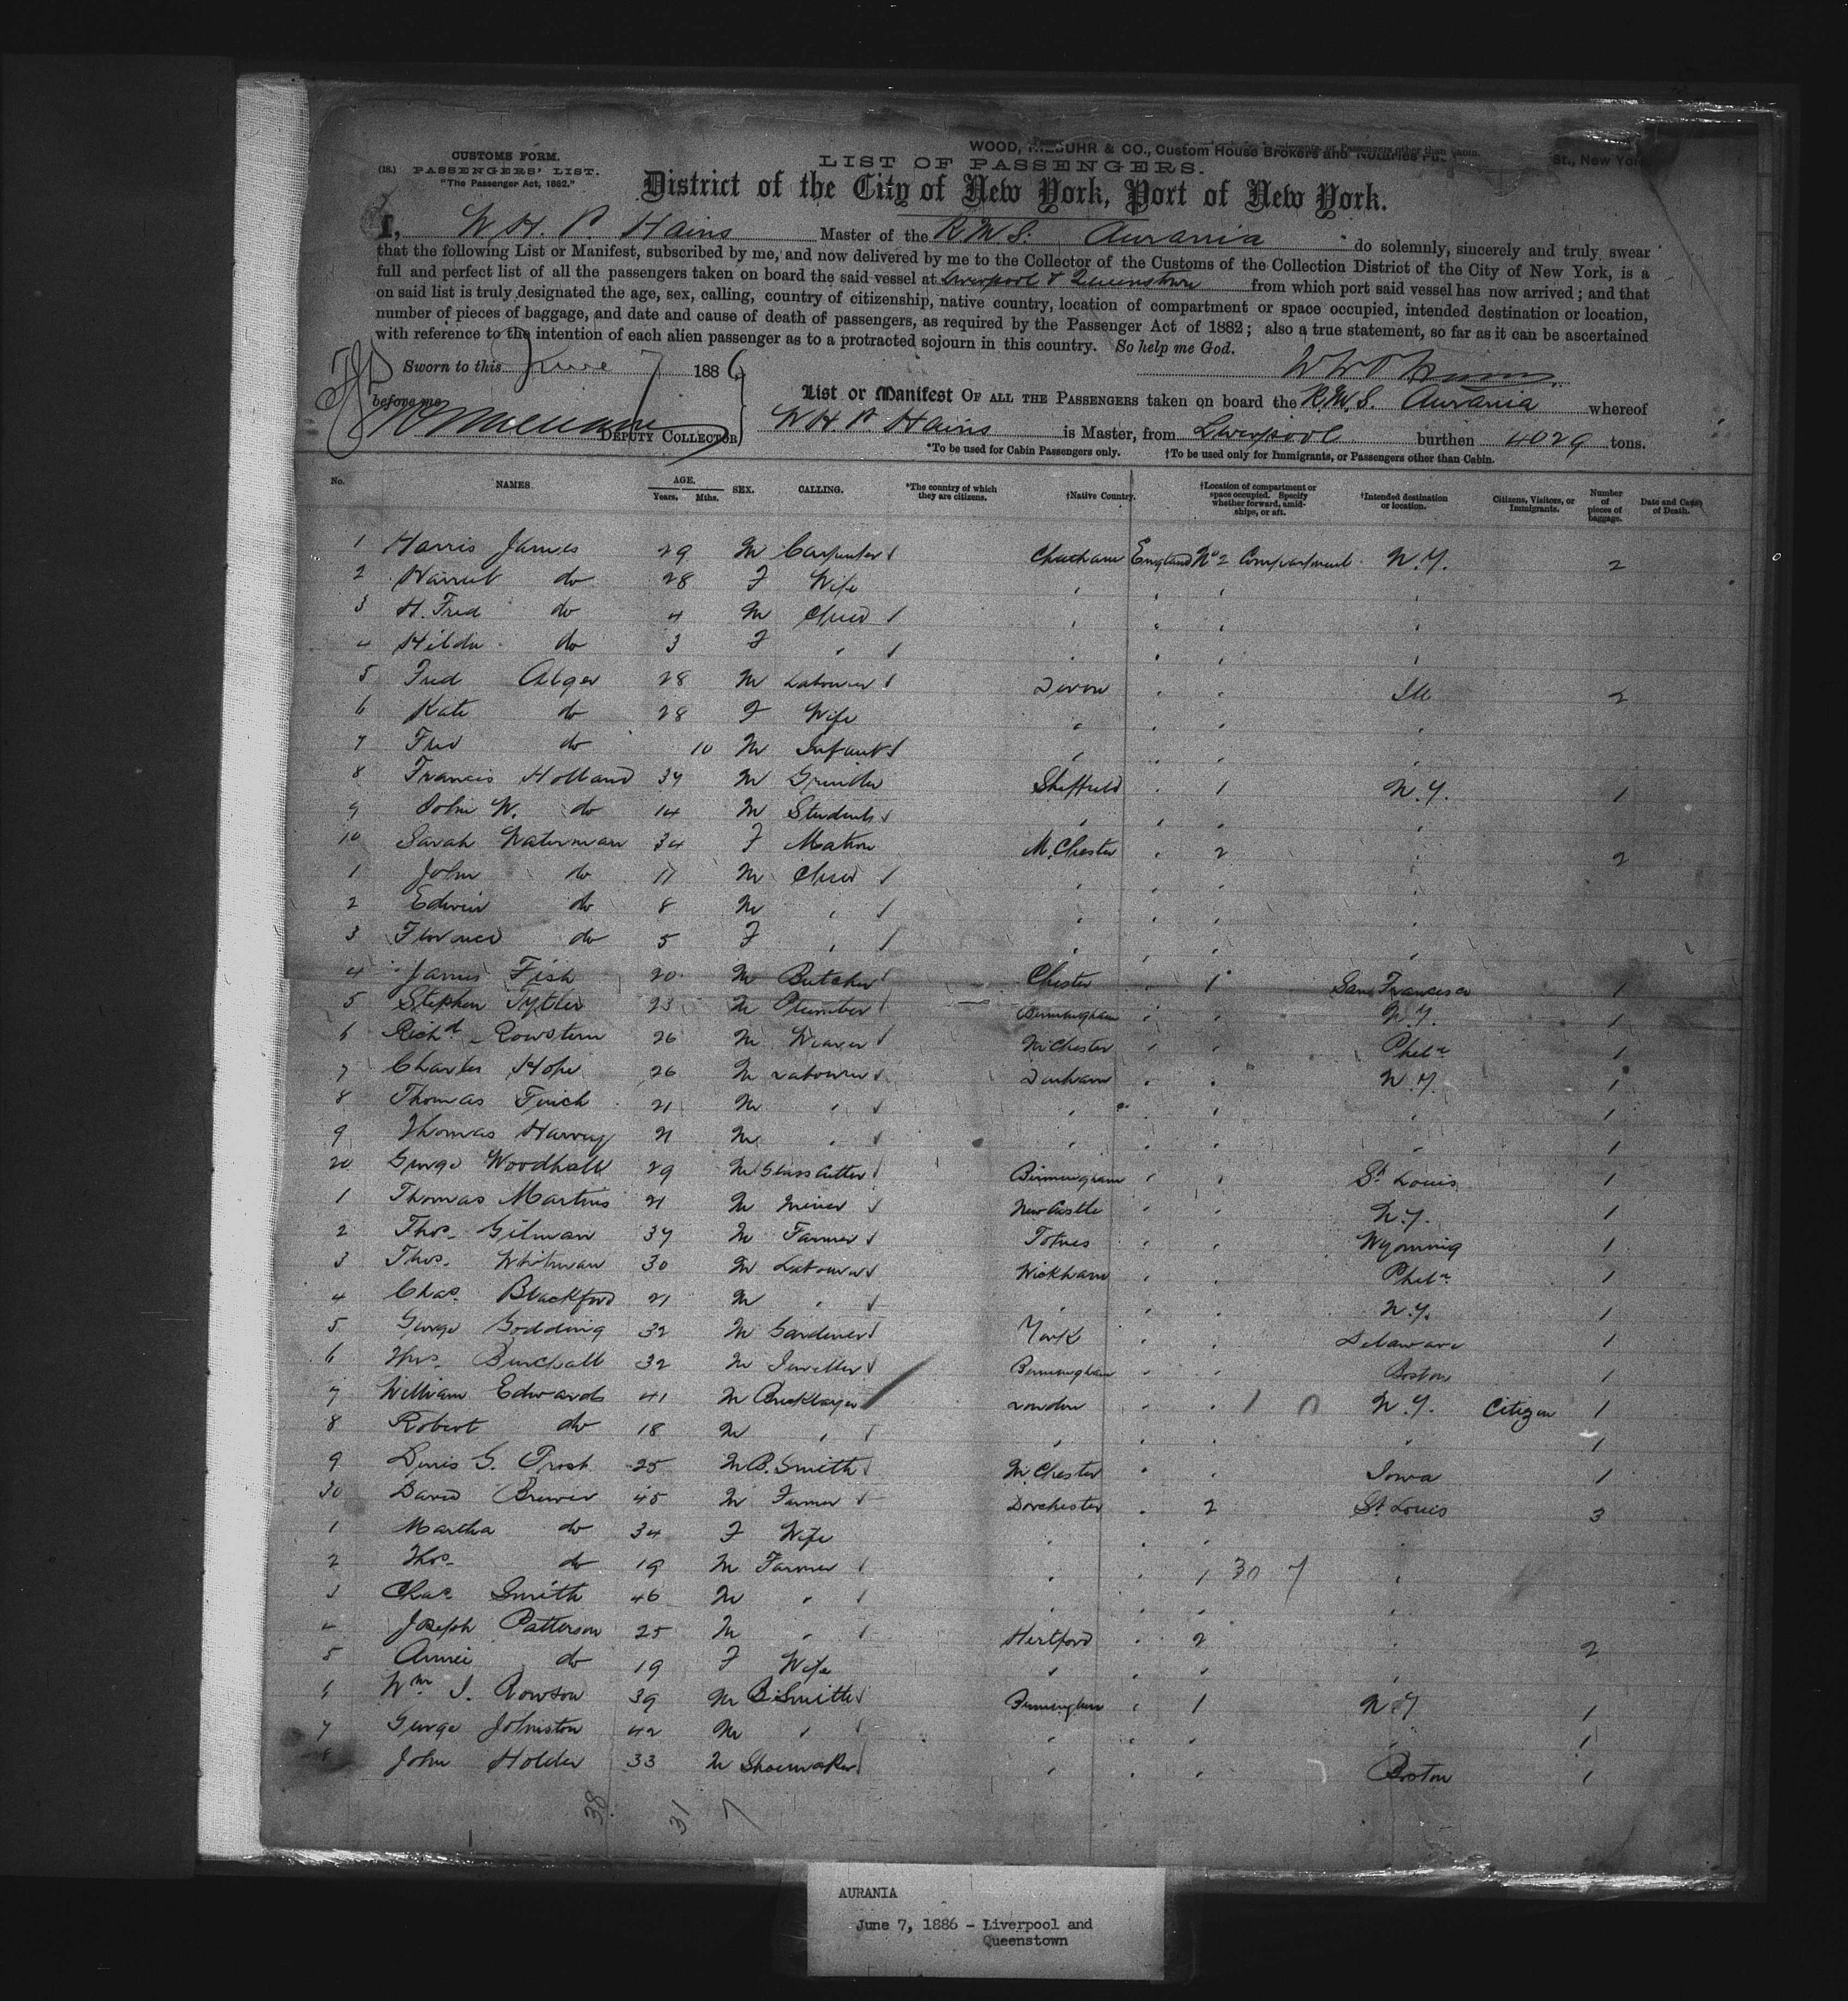 WOOD, & CO., Custom House Brokers and Notaries St., New York
CUSTOMS FORM.
(18.) PASSENGERS' LIST.
"The Passenger Act, 1882."
LIST OF PASSENGERS.
District of the City of New York, Port of New York.
I, W. H. P. Hains Master of the R.M.S. Aurania do solemnly, sincerely and truly swear
that the following List or Manifest, subscribed by me, and now delivered by me to the Collector of the Customs of the Collection District of the City of New York, is a
full and perfect list of all the passengers taken on board the said vessel at Liverpool & Queenstown from which port said vessel has now arrived; and that
on said list is truly designated the age, sex, calling, country of citizenship, native country, location of compartment or space occupied, intended destination or location,
number of pieces of baggage, and date and cause of death of passengers, as required by the Passenger Act of 1882; also a true statement, so far as it can be ascertained
with reference to the intention of each alien passenger as to a protracted sojourn in this country. So help me God.
Sworn to this June 7 1886
before me
DEPUTY COLLECTOR
List or Manifest OF ALL THE PASSENGERS taken on board the R.M.S. Aurania whereof
W. H. P. Hains is Master, from Liverpool burthen 4029 tons.
*To be used for Cabin Passengers only. †To be used only for Immigrants, or Passengers other than Cabin.
No. NAMES. AGE. Years. Mths. SEX. CALLING. *The country of which they are citizens. †Native Country. †Location of compartment or space occupied. Specify whether forward, amidships, or aft. †Intended destination or location. Citizens, Visitors, or Immigrants. Number of pieces of baggage. Date and Cause of Death.
1 Harris James 29 M Carpenter Chatham England No 2 Compartment N.Y. 2
2 Harriet do 28 F Wife
3 H. Fred do 4 M Child
4 Hilda do 3 F "
5 Fred Alger 28 M Labourer Devon " " Ill 2
6 Kate do 28 F Wife
7 Fred do 10 M Infant
8 Francis Holland 34 M Grinder Sheffield " 1 N.Y. 1
9 John W. do 14 M Student
10 Sarah Waterman 34 F Matron M.Chester " 2 " 2
1 John do 11 M Child
2 Edwin do 8 M "
3 Florence do 5 F "
4 James Fish 20 M Butcher Chester " 1 San Francisco 1
5 Stephen Tytler 23 M Plumber Birmingham " " N.Y. 1
6 Richd Rowstern 26 M Weaver M.Chester " " Phela 1
7 Charles Hope 26 M Labourer Durham " " N.Y. 1
8 Thomas Finch 21 M " " " " " 1
9 Thomas Harvey 21 M " " " " " 1
20 George Woodhall 29 M Glass Cutter Birmingham " " St Louis 1
1 Thomas Martins 21 M Miner NewCastle " " N.Y. 1
2 Thos. Gilman 34 M Farmer Totnes " " Wyoming 1
3 Thos. Whitman 30 M Labourer Wickham " " Phela 1
4 Chas. Blackford 21 M " " " " N.Y. 1
5 George Godding 32 M Gardener York " " Delaware 1
6 Thos. Burchall 32 M Jeweller Birmingham " " Boston 1
7 William Edwards 41 M Bricklayer London " " N.Y. Citizen 1
8 Robert do 18 M " " " " " 1
9 Denis G. Trosh 25 M B.Smith M.Chester " " Iowa 1
30 David Brewer 45 M Farmer Dorchester " 2 St Louis 3
1 Martha do 34 F Wife
2 Thos. do 19 M Farmer " " 1 30 7 "
3 Chas. Smith 46 M "
4 Joseph Patterson 25 M " Hertford " 2 " 2
5 Annie do 19 F Wife
6 Wm J. Rowson 39 M B.Smith Birmingham " 1 N.Y 1
7 George Johnston 42 M " " " " " 1
8 John Holder 33 M Shoemaker " " " Boston 1
38 31 7
AURANIA
June 7, 1886 - Liverpool and
Queenstown